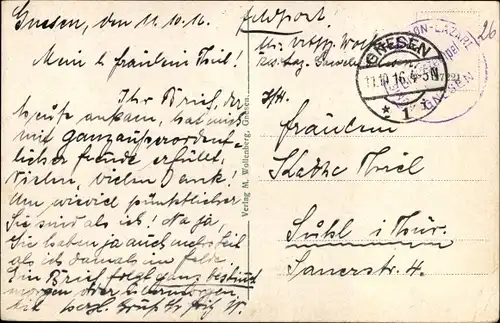 Gnesen, den 11.10.16.
Mein l. Fräulein Thiel!
Ihr Brief, der
heute ankam, hat mich
mit ganz außerordent-
licher Freude erfüllt,
Vielen, vielen Dank!
Um wieviel pünktlicher
Sie sind als ich! Na ja,
Sie haben ja auch mehr Zeit
als ich damals im Felde.
Ein Brief folgt ganz bestimmt
morgen oder übermorgen.
herzl. Gruß Ihr Fritz W.
Verlag M. Wollenberg, Gnesen.
Feldpost
26
GNESEN
11.10.16.4-5N
* 1 *
GNESEN
Frl.
Fräulein
Käthe Thiel
Suhl i. Thür.
Sauerstr. 4.